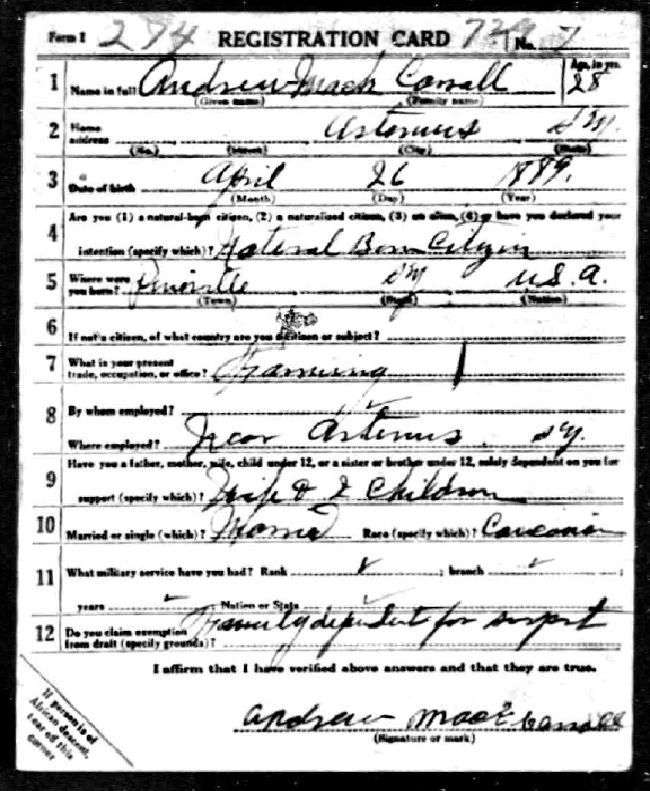 Form 1 274 REGISTRATION CARD 729 No. 7
1 Name in full Andrew Mack Carroll Age, in yrs. 28
(Given name) (Family name)
2 Home address Artemus Ky.
(No.) (Street) (City) (State)
3 Date of birth April 26 1889.
(Month) (Day) (Year)
4 Are you (1) a natural-born citizen, (2) a naturalized citizen, (3) an alien, (4) or have you declared your
intention (specify which)? Natural Born Citizen
5 Where were you born? Pineville Ky U.S.A.
(Town) (State) (Nation)
6 If not a citizen, of what country are you a citizen or subject?
7 What is your present trade, occupation, or office? Farming
8 By whom employed?
Where employed? Near Artemus Ky.
9 Have you a father, mother, wife, child under 12, or a sister or brother under 12, solely dependent on you for
support (specify which)? Wife & 2 Children
10 Married or single (which)? Married Race (specify which)? Caucasian
11 What military service have you had? Rank ; branch ;
years ; Nation or State
12 Do you claim exemption from draft (specify grounds)? Family dependent for support
I affirm that I have verified above answers and that they are true.
Andrew Mack Carroll
(Signature or mark)
If person is of
African descent,
tear off this
corner